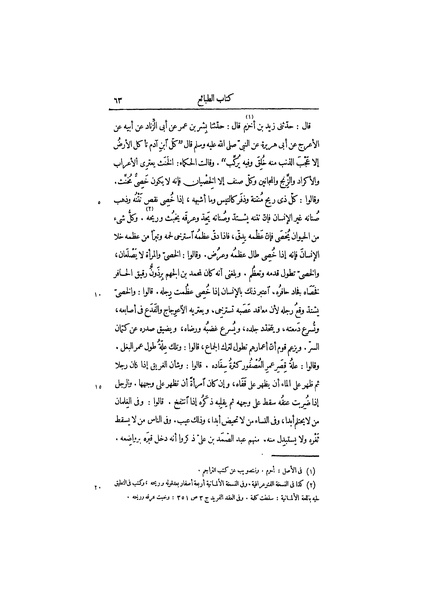 كتاب الطبائع ٦٣
(١)
قال : حدّثنى زيد بن أخزم قال : حدّثنا بشر بن عمر عن أبى الزناد عن أبيه عن
الأعرج عن أبى هريرة عن النبىّ صلى الله عليه وسلم قال "كلّ ابن آدم تأكل الأرض
إلا عَجْبَ الذنب منه خُلِق وفيه يركّب" . وقالت الحكماء: الخَنَث يعترى الأعراب
والأكراد والزّنج والمجانين وكلّ صنف إلا الخِصْيان فإنه لا يكون خَصِىٌّ مُخَنَّث.
٥
وقالوا : كلّ ذى ريح مُنتِنة وذفَر كالتّيس وما أشبهه ، إذا خُصِى نقص نَتْنُه وذهب
صُنانه غير الإنسان فإنّ نتنه يشتدّ وصُنانه يَحِدّ وعرقه يخبُث وريحه (٢) . وكلّ شىء
من الحيوان يُخصَى فإنّ عَظْمَه يدِقّ ، فإذا دقّ عظمُه استرخى لحمه وتبرّأ من عظمه خلا
الإنسانَ فإنه إذا خُصِى طال عظمُه وعرُض . وقالوا : الخصىّ والمرأة لا يَصْلَعان،
والخصىّ تطول قدمه وتعظُم . وبلغنى أنه كان لمحمد بن الجهم بِرذَونٌ رقيق الحافر
١٠
فخَصَاه فجاد حافره، اعتبر ذلك بالإنسان إذا خُصِى عظمت رجله . قالوا : والخصىّ
يشتدّ وقع رجله لأن معاقد عَصَبه تسترخى، ويعتريه الاعوجاج والفَدَع فى أصابعه،
وتُسرع دَمعته ، ويتخدّد جلده ، ويُسرع غضبُه ورضاه ، ويضيق صدره عن كتمان
السرّ . ويزعم قوم أنّ أعمارهم تطول لترك الجماع ، قالوا : وتلك علّة طول عمر البغل .
وقالوا : علّة قِصَر عمر العُصفور كثرةُ سِفاده . قالوا : وشأن الغريق إذا كان رجلا
١٥
ثم ظهر على الماء أن يظهر على قَفَاه ، وإن كان امرأةً أن تظهر على وجهها . والرجل
إذا ضُرِبت عنقُه سقط على وجهه ثم يقلِبه ذكَرُه إذا انتفخ . قالوا : وفى الغِلمان
من لا يحتلم أبدا، وفى النساء من لا تحيض أبدا، وذلك عيب. وفى الناس من لا يسقط
ثغْرُه ولا يستبدل منه. منهم عبد الصمد بن علىّ ذكروا أنه دخل قبرَه برواضعه .
(١) فى الأصل : أحرم . والتصويب عن كتب التراجم .
٢٠
(٢) كذا فى النسخة الفتوغرافية ، وفى النسخة الألمانية أربعة أصفار بعد قوله وريحه ، وكتب فى التعليق
عليه باللغة الألمانية : سقطت كلمة . وفى العقد الفريد ج ٣ ص ٣٥١ : وخبث عرقه وريحه .